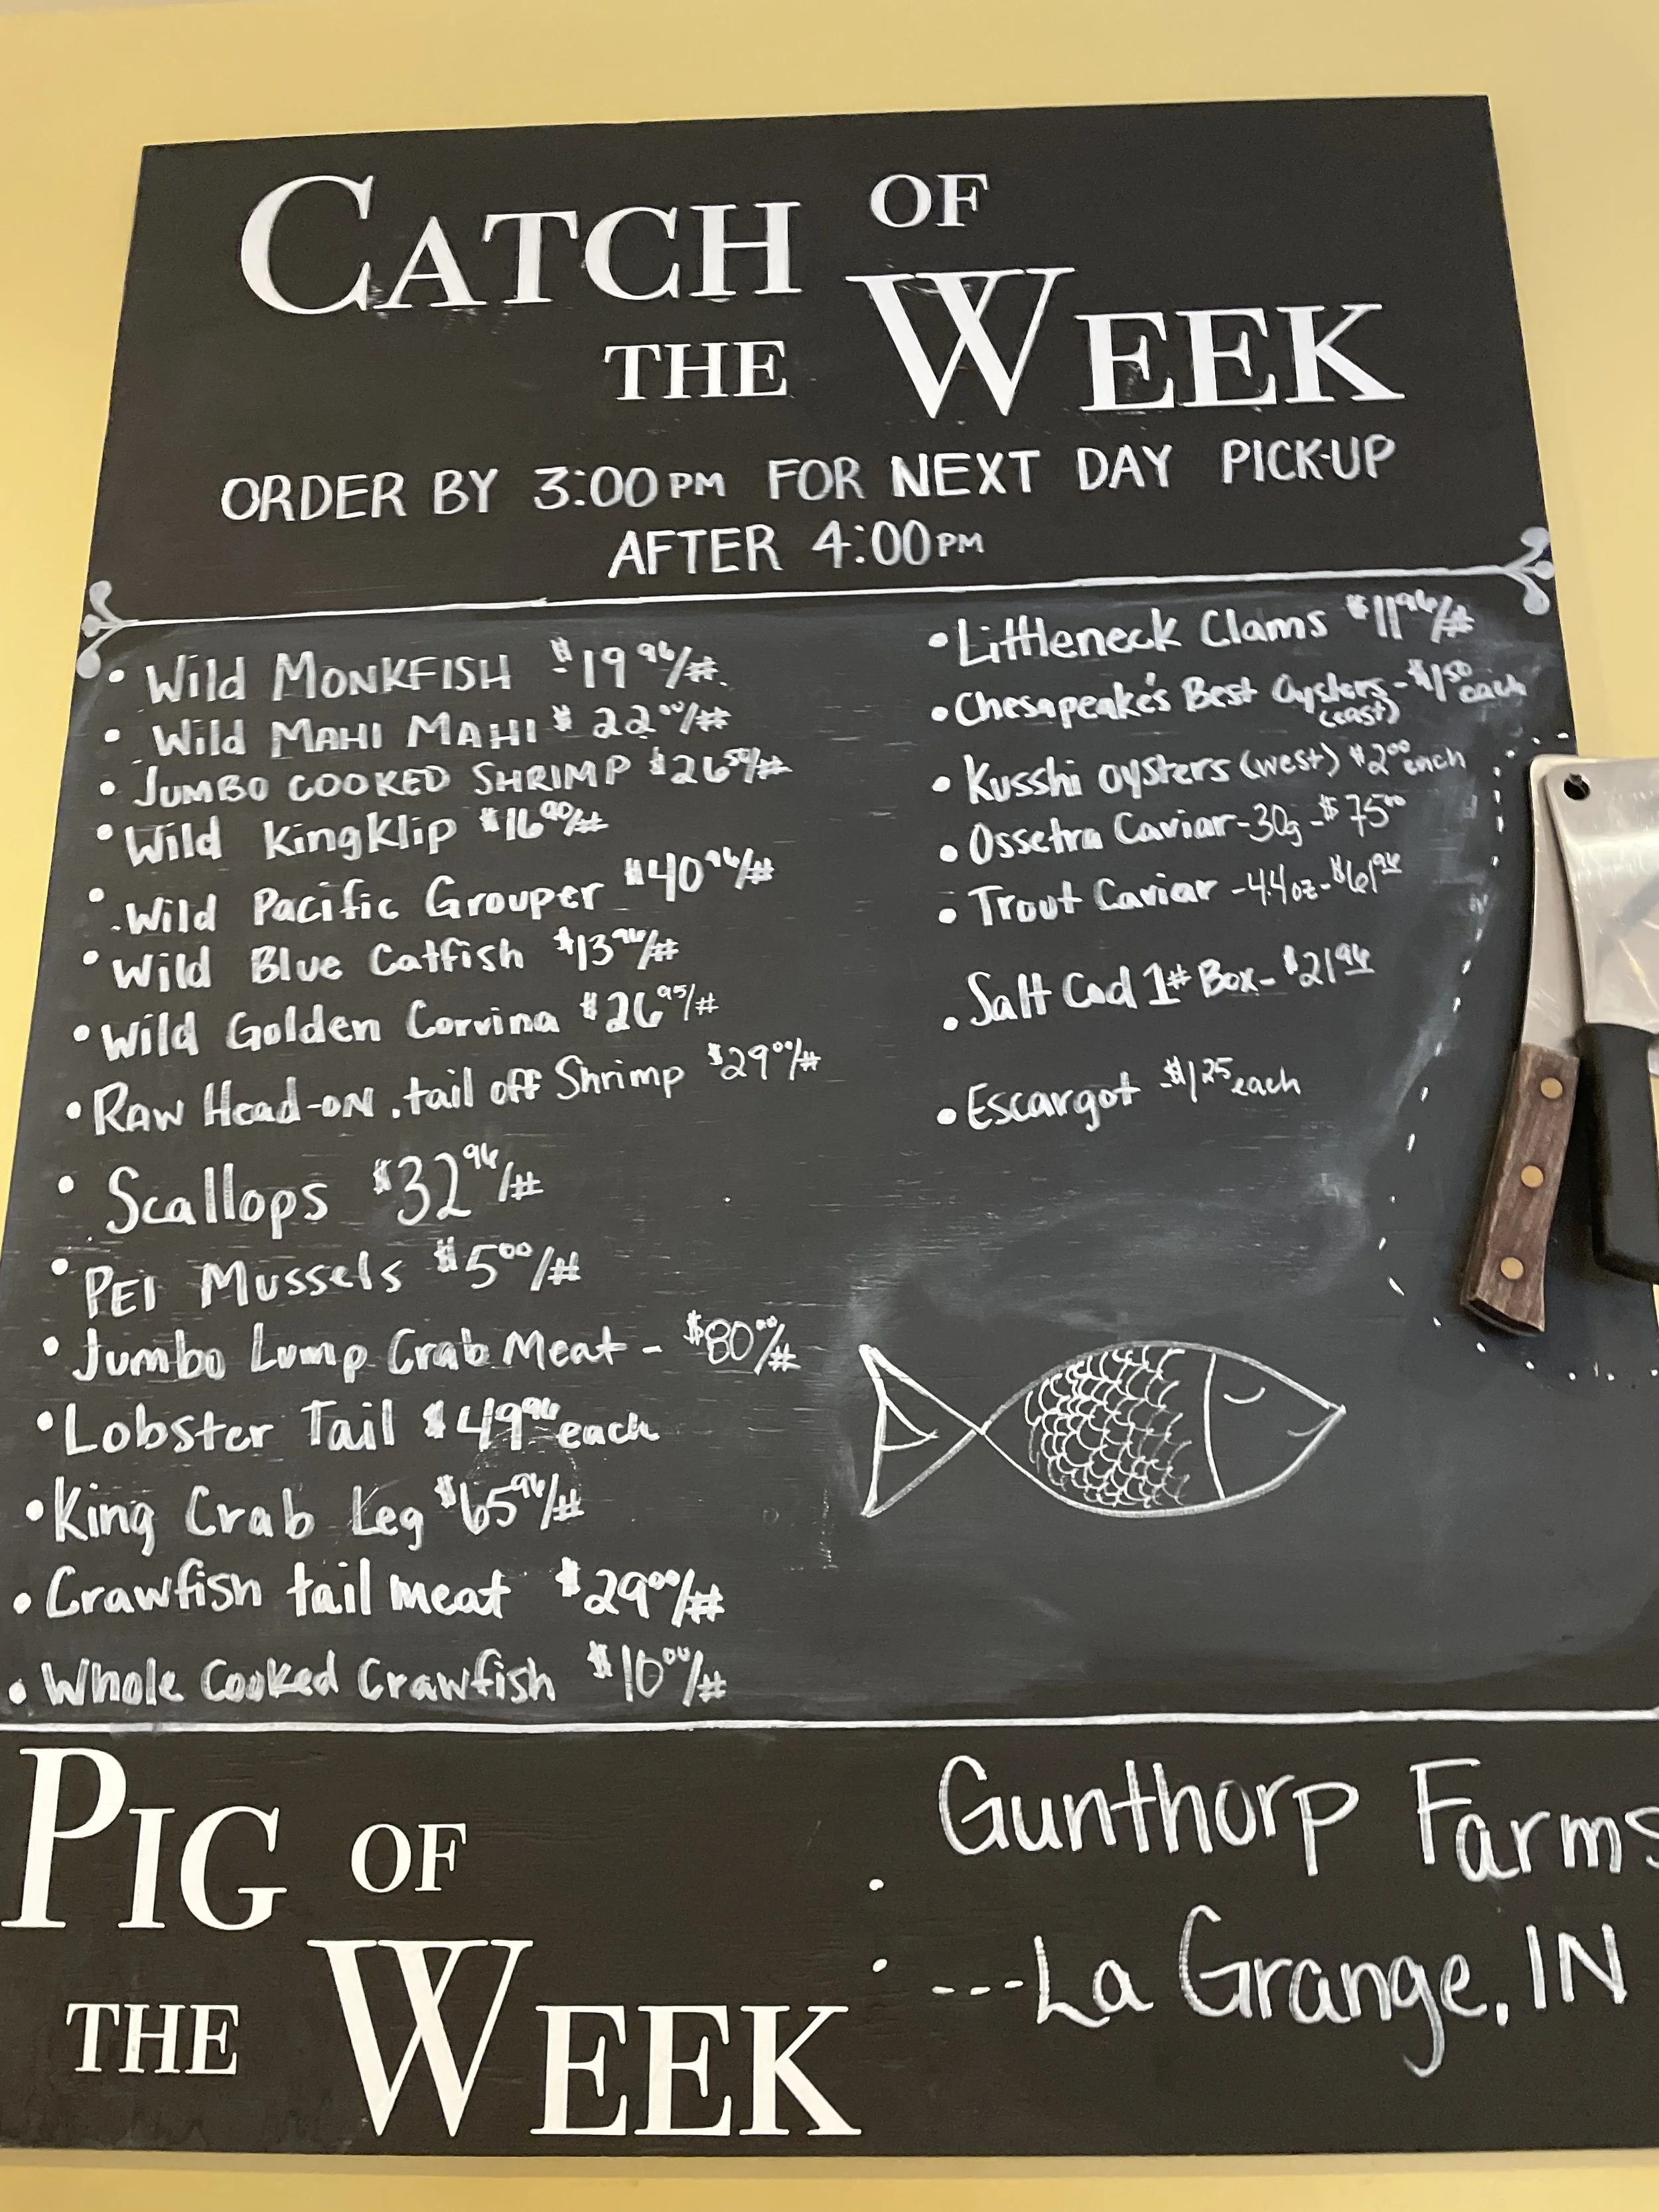 CATCH OF
THE WEEK
ORDER BY 3:00PM FOR NEXT DAY PICK-UP
AFTER 4:00PM
• Wild MONKFISH $19.96/#
• Wild MAHI MAHI $22.00/#
• JUMBO COOKED SHRIMP $26.50/#
• Wild KingKlip $16.90/#
• Wild Pacific Grouper $40.96/#
• Wild Blue Catfish $13.96/#
• Wild Golden Corvina $26.95/#
• RAW Head-ON, tail off Shrimp $29.00/#
• Scallops $32.96/#
• PEI Mussels $5.00/#
• Jumbo Lump Crab Meat - $80.00/#
• Lobster Tail $49.96 each
• King Crab Leg $65.96/#
• Crawfish tail meat $29.00/#
• Whole Cooked Crawfish $10.00/#
• Littleneck Clams $11.96/#
• Chesapeake's Best Oysters - $1.50 each
(east)
• Kusshi oysters (west) $2.00 each
• Ossetra Caviar - 30g - $75.00
• Trout Caviar - 4.4oz - $61.96
• Salt Cod 1# Box - $21.96
• Escargot $1.25 each
PIG OF
THE WEEK
Gunthorp Farms
---La Grange, IN